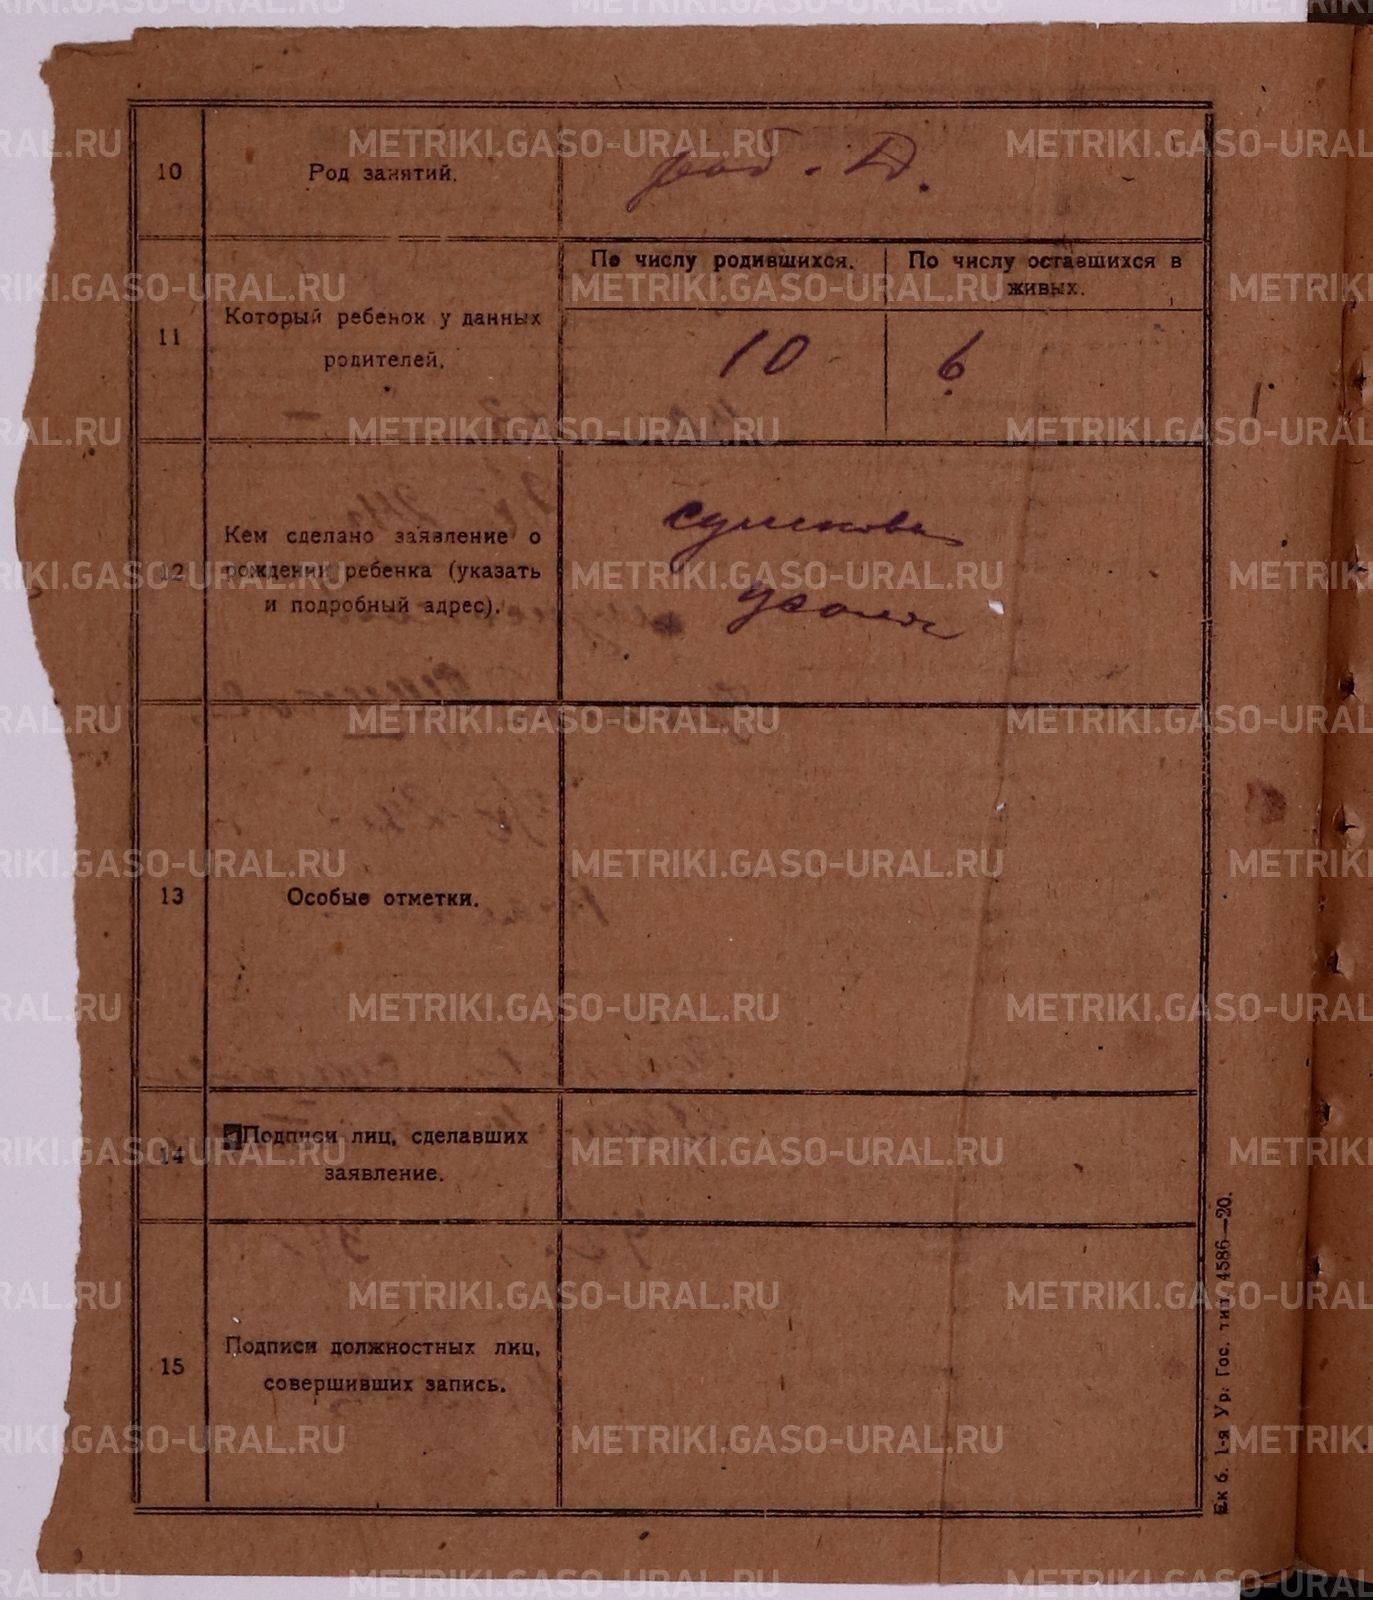 10
Род занятий.
раб. Д.
11
Который ребенок у данных
родителей.
По числу родившихся.
По числу оставшихся в
живых.
10
6
12
Кем сделано заявление о
рождении ребенка (указать
и подробный адрес).
Сушкова
13
Особые отметки.
14
Подписи лиц, сделавших
заявление.
15
Подписи должностных лиц,
совершивших запись.
Ек б. 1-я Ур. Гос. тип. 4586—20.
METRIKI.GASO-URAL.RU